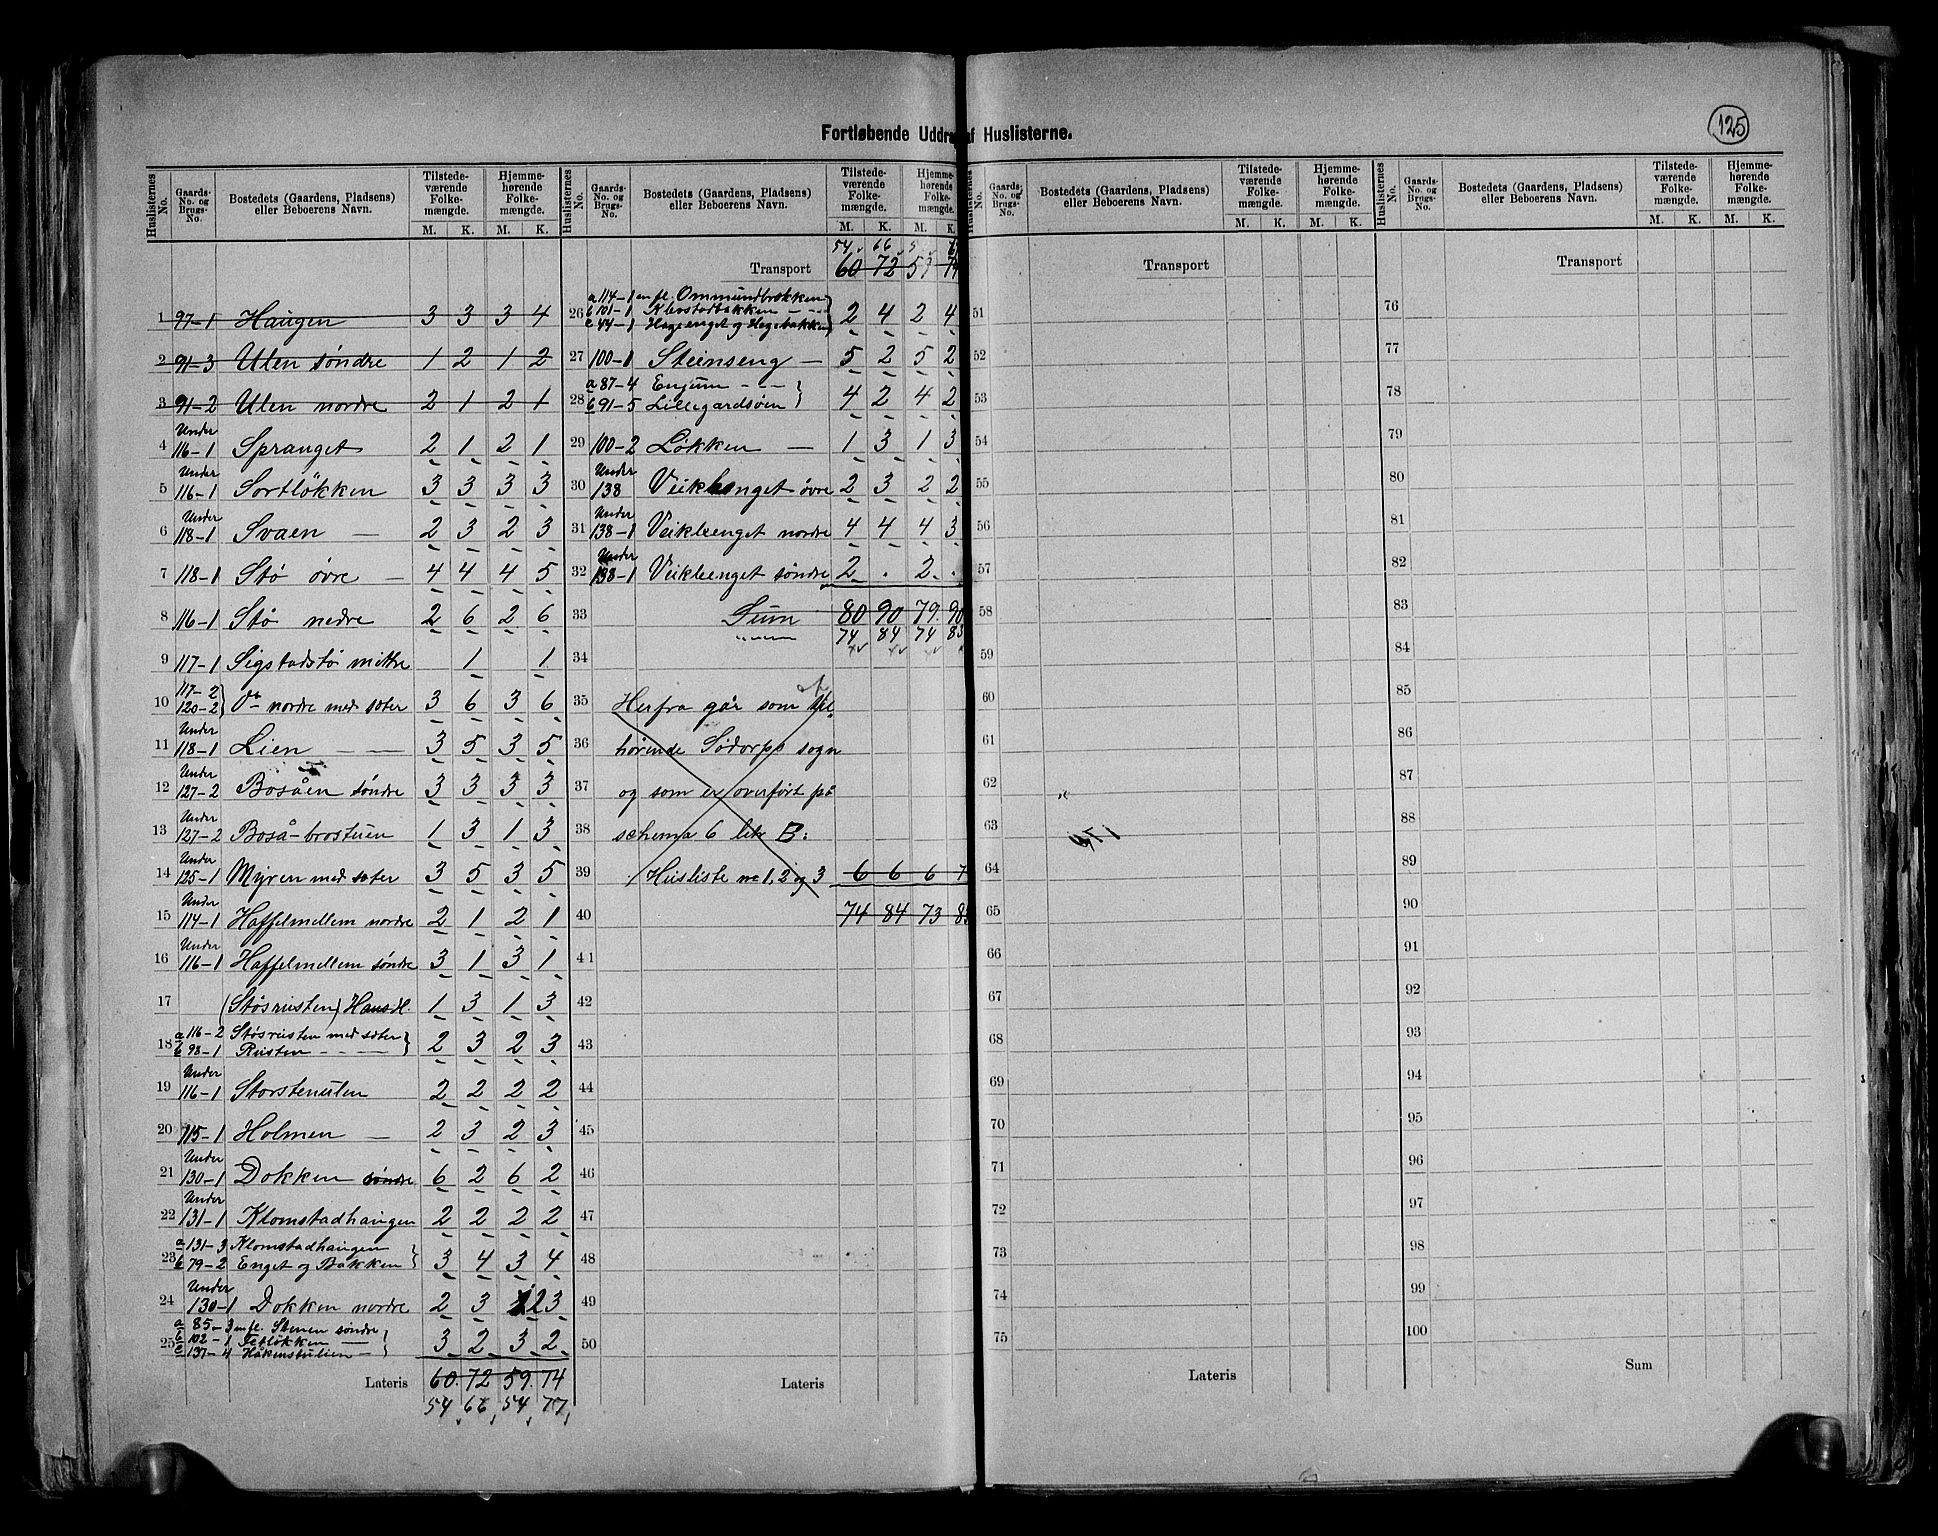 125
Fortløbende Uddrag af Huslisterne.
Huslisternes No. Gaards-No. og Brugs-No. Bostedets (Gaardens, Pladsens) eller Beboerens Navn. Tilstedeværende Folkemængde. M. K. Hjemmehørende Folkemængde. M. K.
1 97-1 Haugen 3 3 3 4
2 91-3 Ulen søndre 1 2 1 2
3 91-2 Ulen nordre 2 1 2 1
4 Under 116-1 Spranget 2 1 2 1
5 Under 116-1 Sortløkken 3 3 3 3
6 Under 118-1 Svaen — 2 3 2 3
7 118-1 Stø øvre — 4 4 4 5
8 116-1 Stø nedre 2 6 2 6
9 117-1 Sigstadstø mittre 1 1
10 117-2 120-2 } Do nordre med sæter 3 6 3 6
11 Under 118-1 Lien — — 3 5 3 5
12 Under 127-2 Bosåen søndre 3 3 3 3
13 Under 127-2 Boså-brostuen 1 3 1 3
14 Under 125-1 Myren med sæter 3 5 3 5
15 Under 114-1 Haffelmellem nordre 2 1 2 1
16 Under 116-1 Haffelmellem søndre 3 1 3 1
17 (Støsrusten) Handl. 1 3 1 3
18 a 116-2 Støsrusten med sæter
b 98-1 Rusten - - - - } 2 3 2 3
19 Under 116-1 Storstenulen 2 2 2 2
20 115-1 Holmen — 2 3 2 3
21 Under 130-1 Dokken søndre 6 2 6 2
22 Under 131-1 Klomstadhaugen 2 2 2 2
23 a 131-3 Klomstadhaugen
b 79-2 Enget og Bakken } 3 4 3 4
24 Under 130-1 Dokken nordre 2 3 2 3
25 a 85-3 m fl. Stenen søndre
b 102-1 Tetløkken
c 137-4 Håkenstulien — } 3 2 3 2
Lateris 60. 72 59. 74
54 66 54 77
Huslisternes No. Gaards-No. og Brugs-No. Bostedets (Gaardens, Pladsens) eller Beboerens Navn. Tilstedeværende Folkemængde. M. K. Hjemmehørende Folkemængde. M. K.
54 66
Transport 60 72 59 74
26 a 114-1 m fl. Ommundbrækken
b 101-1 Klostadbakken - - -
c 44-1 Hageenget og Hagebakken } 2 4 2 4
27 100-1 Steinseng — 5 2 5 2
28 a 87-4 Enjum - - -
b 91-5 Lillegardsøen } 4 2 4 2
29 100-2 Løkken — 1 3 1 3
30 Under 138 Veiklenget øvre 2 3 2 2
31 Under 138-1 Veiklenget nordre 4 4 4 3
32 Under 138-1 Veiklenget søndre 2 . 2 .
33 Sum 80 90 79. 90
74 84 74 83
34
35 Herfra går som til-
36 hørende Sødorps sogn
37 og som er overført på
38 schema 6 litr B:
39 Husliste no 1, 2 og 3 6 6 6 7
40 74 84 73 83
41
42
43
44
45
46
47
48
49
50
Lateris
Huslisternes No. Gaards-No. og Brugs-No. Bostedets (Gaardens, Pladsens) eller Beboerens Navn. Tilstedeværende Folkemængde. M. K. Hjemmehørende Folkemængde. M. K.
Transport
51
52
53
54
55
56
57
58
59
60
61
62
63
64
65
66
67
68
69
70
71
72
73
74
75
Lateris
Huslisternes No. Gaards-No. og Brugs-No. Bostedets (Gaardens, Pladsens) eller Beboerens Navn. Tilstedeværende Folkemængde. M. K. Hjemmehørende Folkemængde. M. K.
Transport
76
77
78
79
80
81
82
83
84
85
86
87
88
89
90
91
92
93
94
95
96
97
98
99
100
Sum